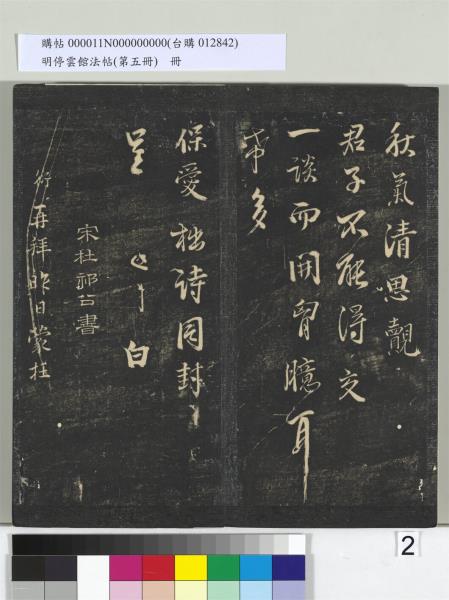 購帖 000011N000000000(台購 012842)
明停雲館法帖(第五冊) 冊
秋氣清思覿
君子不能得文
一談而開胷臆耳
希多
保愛拙詩同封
呈 白
宋杜祁公書
衍再拜昨日蒙枉
2